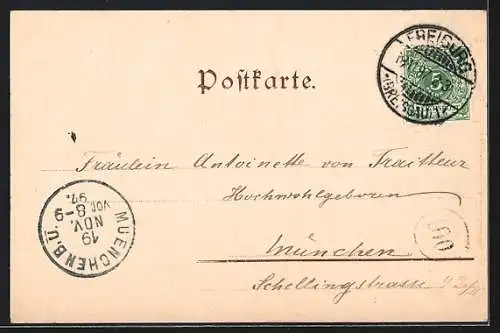 FREIBURG
(BREISGAU) 1
5
Postkarte.
Fräulein Antoinette von Traitteur
Hochwohlgeboren
München
Schellingstrasse
MUENCHEN B.P.
19
NOV.
VOR. 8-9
97.